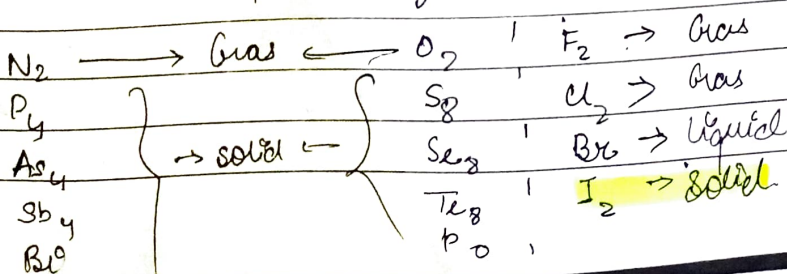 N₂ → Gas ← O₂ ' F₂ → Gas
P₄ S₈ ' Cl₂ → Gas
As₄ → solid ← Se₈ ' Br → Liquid
Sb₄ Te₈ ' I₂ → Solid
Bi⁰ P o ,